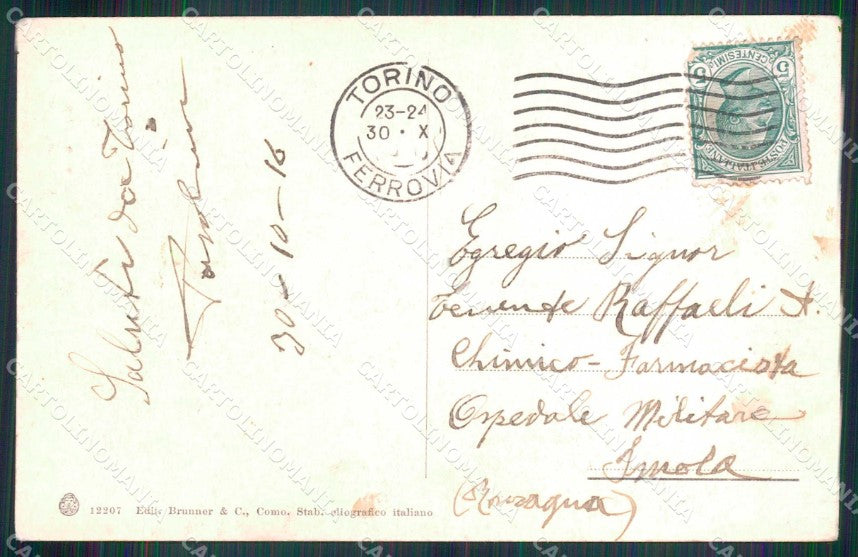 Saluti da Torino
30-10-16
TORINO
23-24
30 · X
FERROVIA
CENTESIMI 5
POSTE ITALIANE
Egregio Signor
Tenente Raffaeli A.
Chimico-Farmacista
Ospedale Militare
Imola
(Romagna)
12207 Edit. Brunner & C., Como. Stab. eliografico italiano
CARTOLINOMANIA